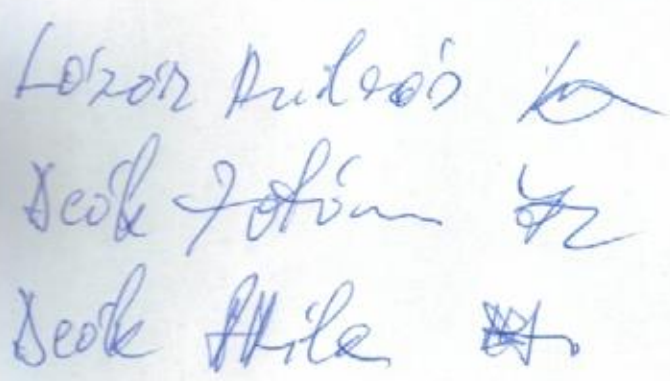 Lázár András
Deák Zoltán
Deák Attila